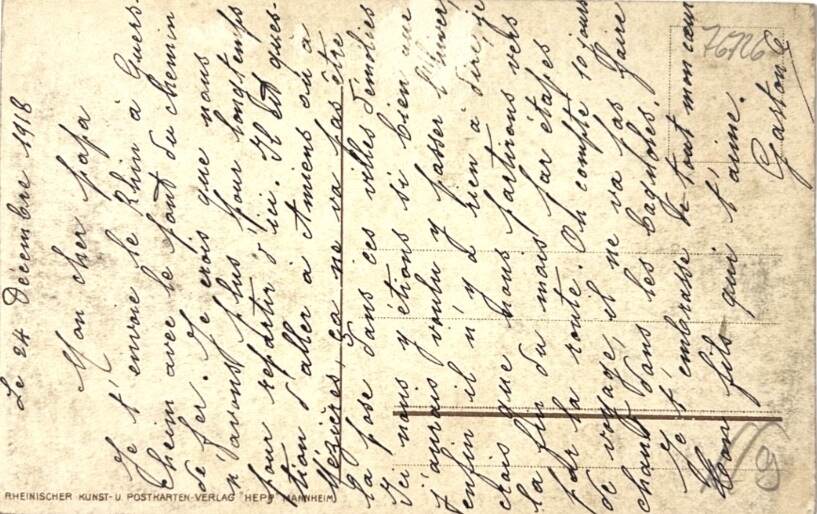 Le 24 Décembre 1918
Mon cher papa
Je t'envoie le Rhin à Guers-
theim avec le pont du chemin
de fer. Je crois que nous
n'avons plus pour longtemps
pour repartir d'ici. Il est ques-
tion d'aller à Amiens ou à
Mézières, ça ne va pas être
la pose dans ces villes démolies
Ici nous y étions si bien que
j'aurais voulu y passer l'hiver,
enfin il n'y a rien à dire, je
crois que nous partirons vers
la fin du mois par étapes
par la route. On compte 10 jours
de voyage, il ne va pas faire
chaud dans les bagnoles.
Je t'embrasse de tout mon cœur
Ton fils qui t'aime.
Gaston
RHEINISCHER KUNST- U. POSTKARTEN-VERLAG "HEPP" MANNHEIM